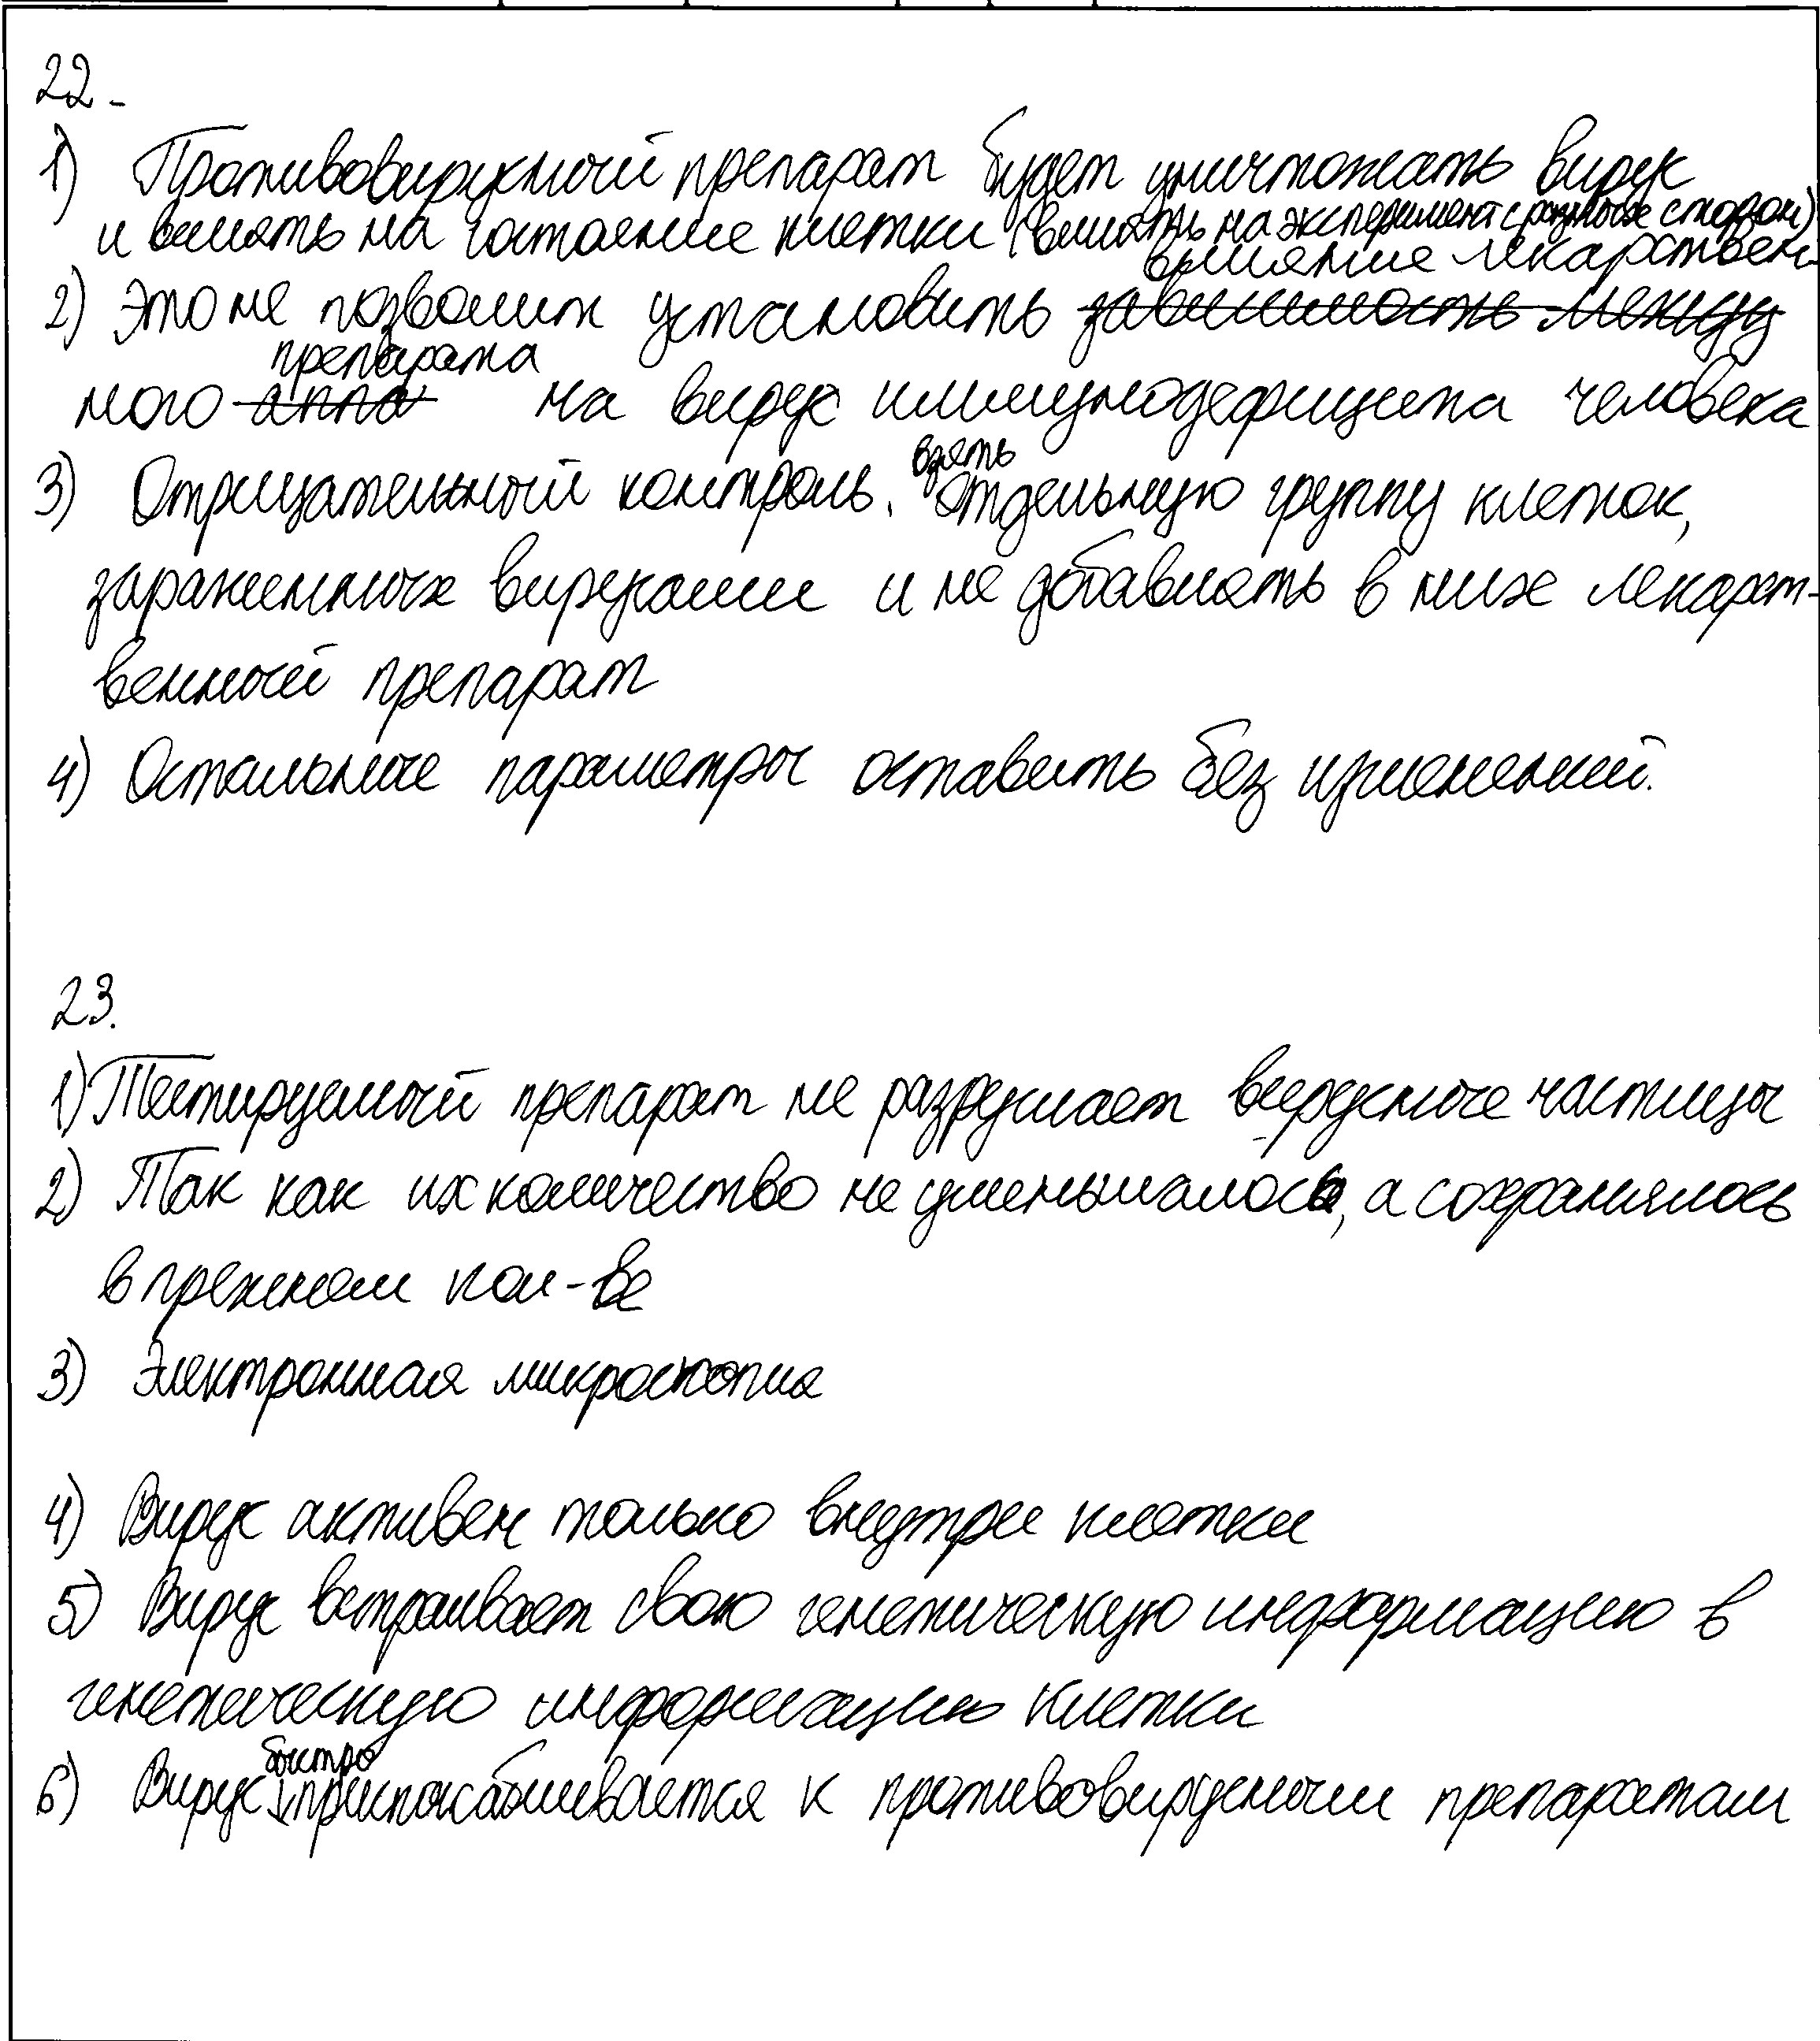 22.
1) Противовирусный препарат будет уничтожать вирус
и влиять на состояние клетки (влиять на эксперимент с разных сторон)
2) Это не позволит установить ~~зависимость между~~ влияние лекарствен-
ного ~~аппа~~ препарата на вирус иммунодефицита человека
3) Отрицательный контроль. взять отдельную группу клеток,
зараженных вирусами и не добавлять в них лекарст-
венный препарат
4) Остальные параметры оставить без изменений.
23.
1) Тестируемый препарат не разрушает вирусные частицы
2) Так как их количество не уменьшалось, а сохранялось
в прежнем кол-ве
3) Электронная микроскопия
4) Вирус активен только внутри клетки
5) Вирус встраивает свою генетическую информацию в
генетическую информацию клетки
6) Вирус быстро приспосабливается к противовирусным препаратам